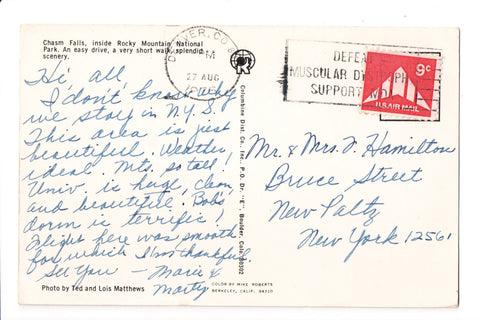 Chasm Falls, inside Rocky Mountain National
Park. An easy drive, a very short walk, splendid
scenery.
Hi all,
I don't know why
we stay in N.Y.S.
This area is just
beautiful. Weather,
ideal. Mts. so tall!
Univ. is huge, clean,
and beautiful. Bob's
dorm is terrific!
Flight here was smooth
for which I'm thankful.
See you - Marie &
Marty
Photo by Ted and Lois Matthews
COLOR BY MIKE ROBERTS
BERKELEY, CALIF. 94710
Columbine Dist. Co., Inc., P.O. Dr. "E", Boulder, Colo. 80302
DENVER, CO
PM
27 AUG
DEFEAT
MUSCULAR DYSTROPHY
SUPPORT MD
9c
U.S. AIR MAIL
Mr. & Mrs. F. Hamilton
Bruce Street
New Paltz
New York 12561